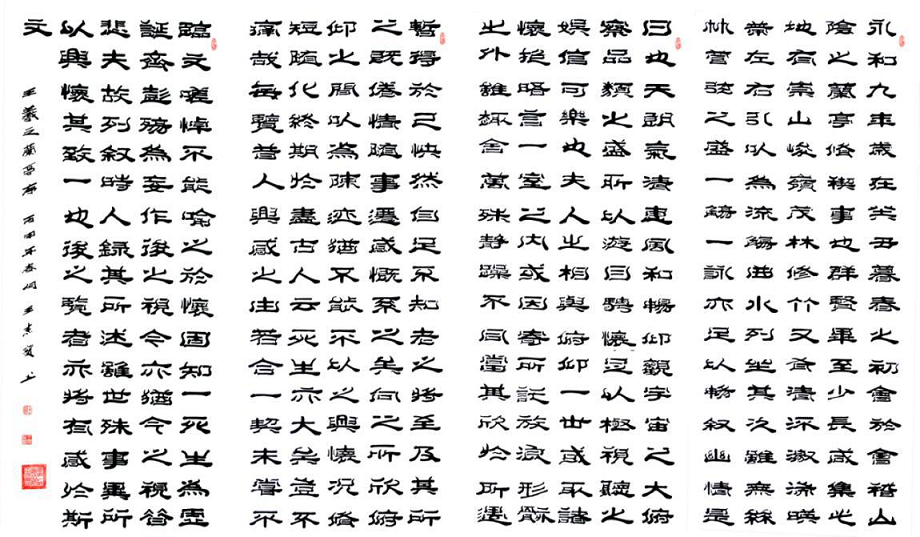 永和九年歲在癸丑暮春之初會於會稽山
陰之蘭亭脩禊事也群賢畢至少長咸集此
地有崇山峻嶺茂林修竹又有清流激湍映
帶左右引以為流觴曲水列坐其次雖無絲
竹管弦之盛一觴一詠亦足以暢敘幽情是
日也天朗氣清惠風和暢仰觀宇宙之大俯
察品類之盛所以遊目騁懷足以極視聽之
娛信可樂也夫人之相與俯仰一世或取諸
懷抱晤言一室之內或因寄所託放浪形骸
之外雖趣舍萬殊靜躁不同當其欣於所遇
暫得於己快然自足不知老之將至及其所
之既倦情隨事遷感慨系之矣向之所欣俯
仰之間以為陳迹猶不能不以之興懷況脩
短隨化終期於盡古人云死生亦大矣豈不
痛哉每覽昔人興感之由若合一契未嘗不
臨文嗟悼不能喻之於懷固知一死生為虛
誕齊彭殤為妄作後之視今亦猶今之視昔
悲夫故列敘時人錄其所述雖世殊事異所
以興懷其致一也後之覽者亦將有感於斯
文
王羲之蘭亭序